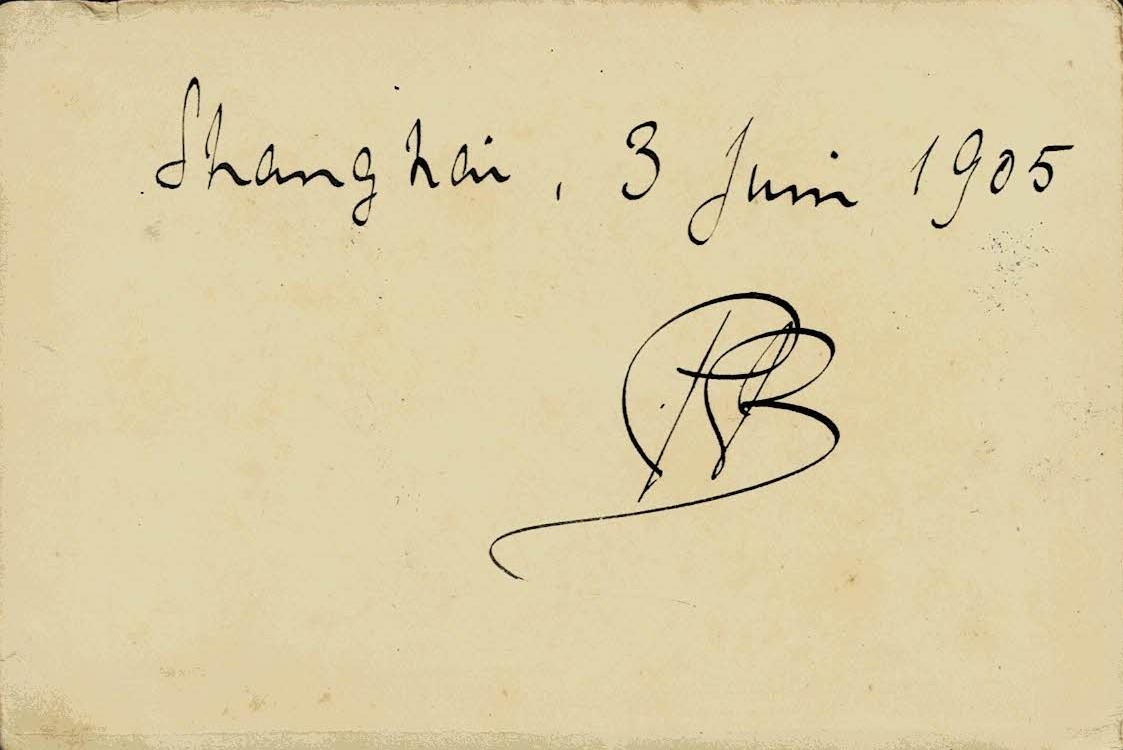 Shanghai, 3 Juin 1905